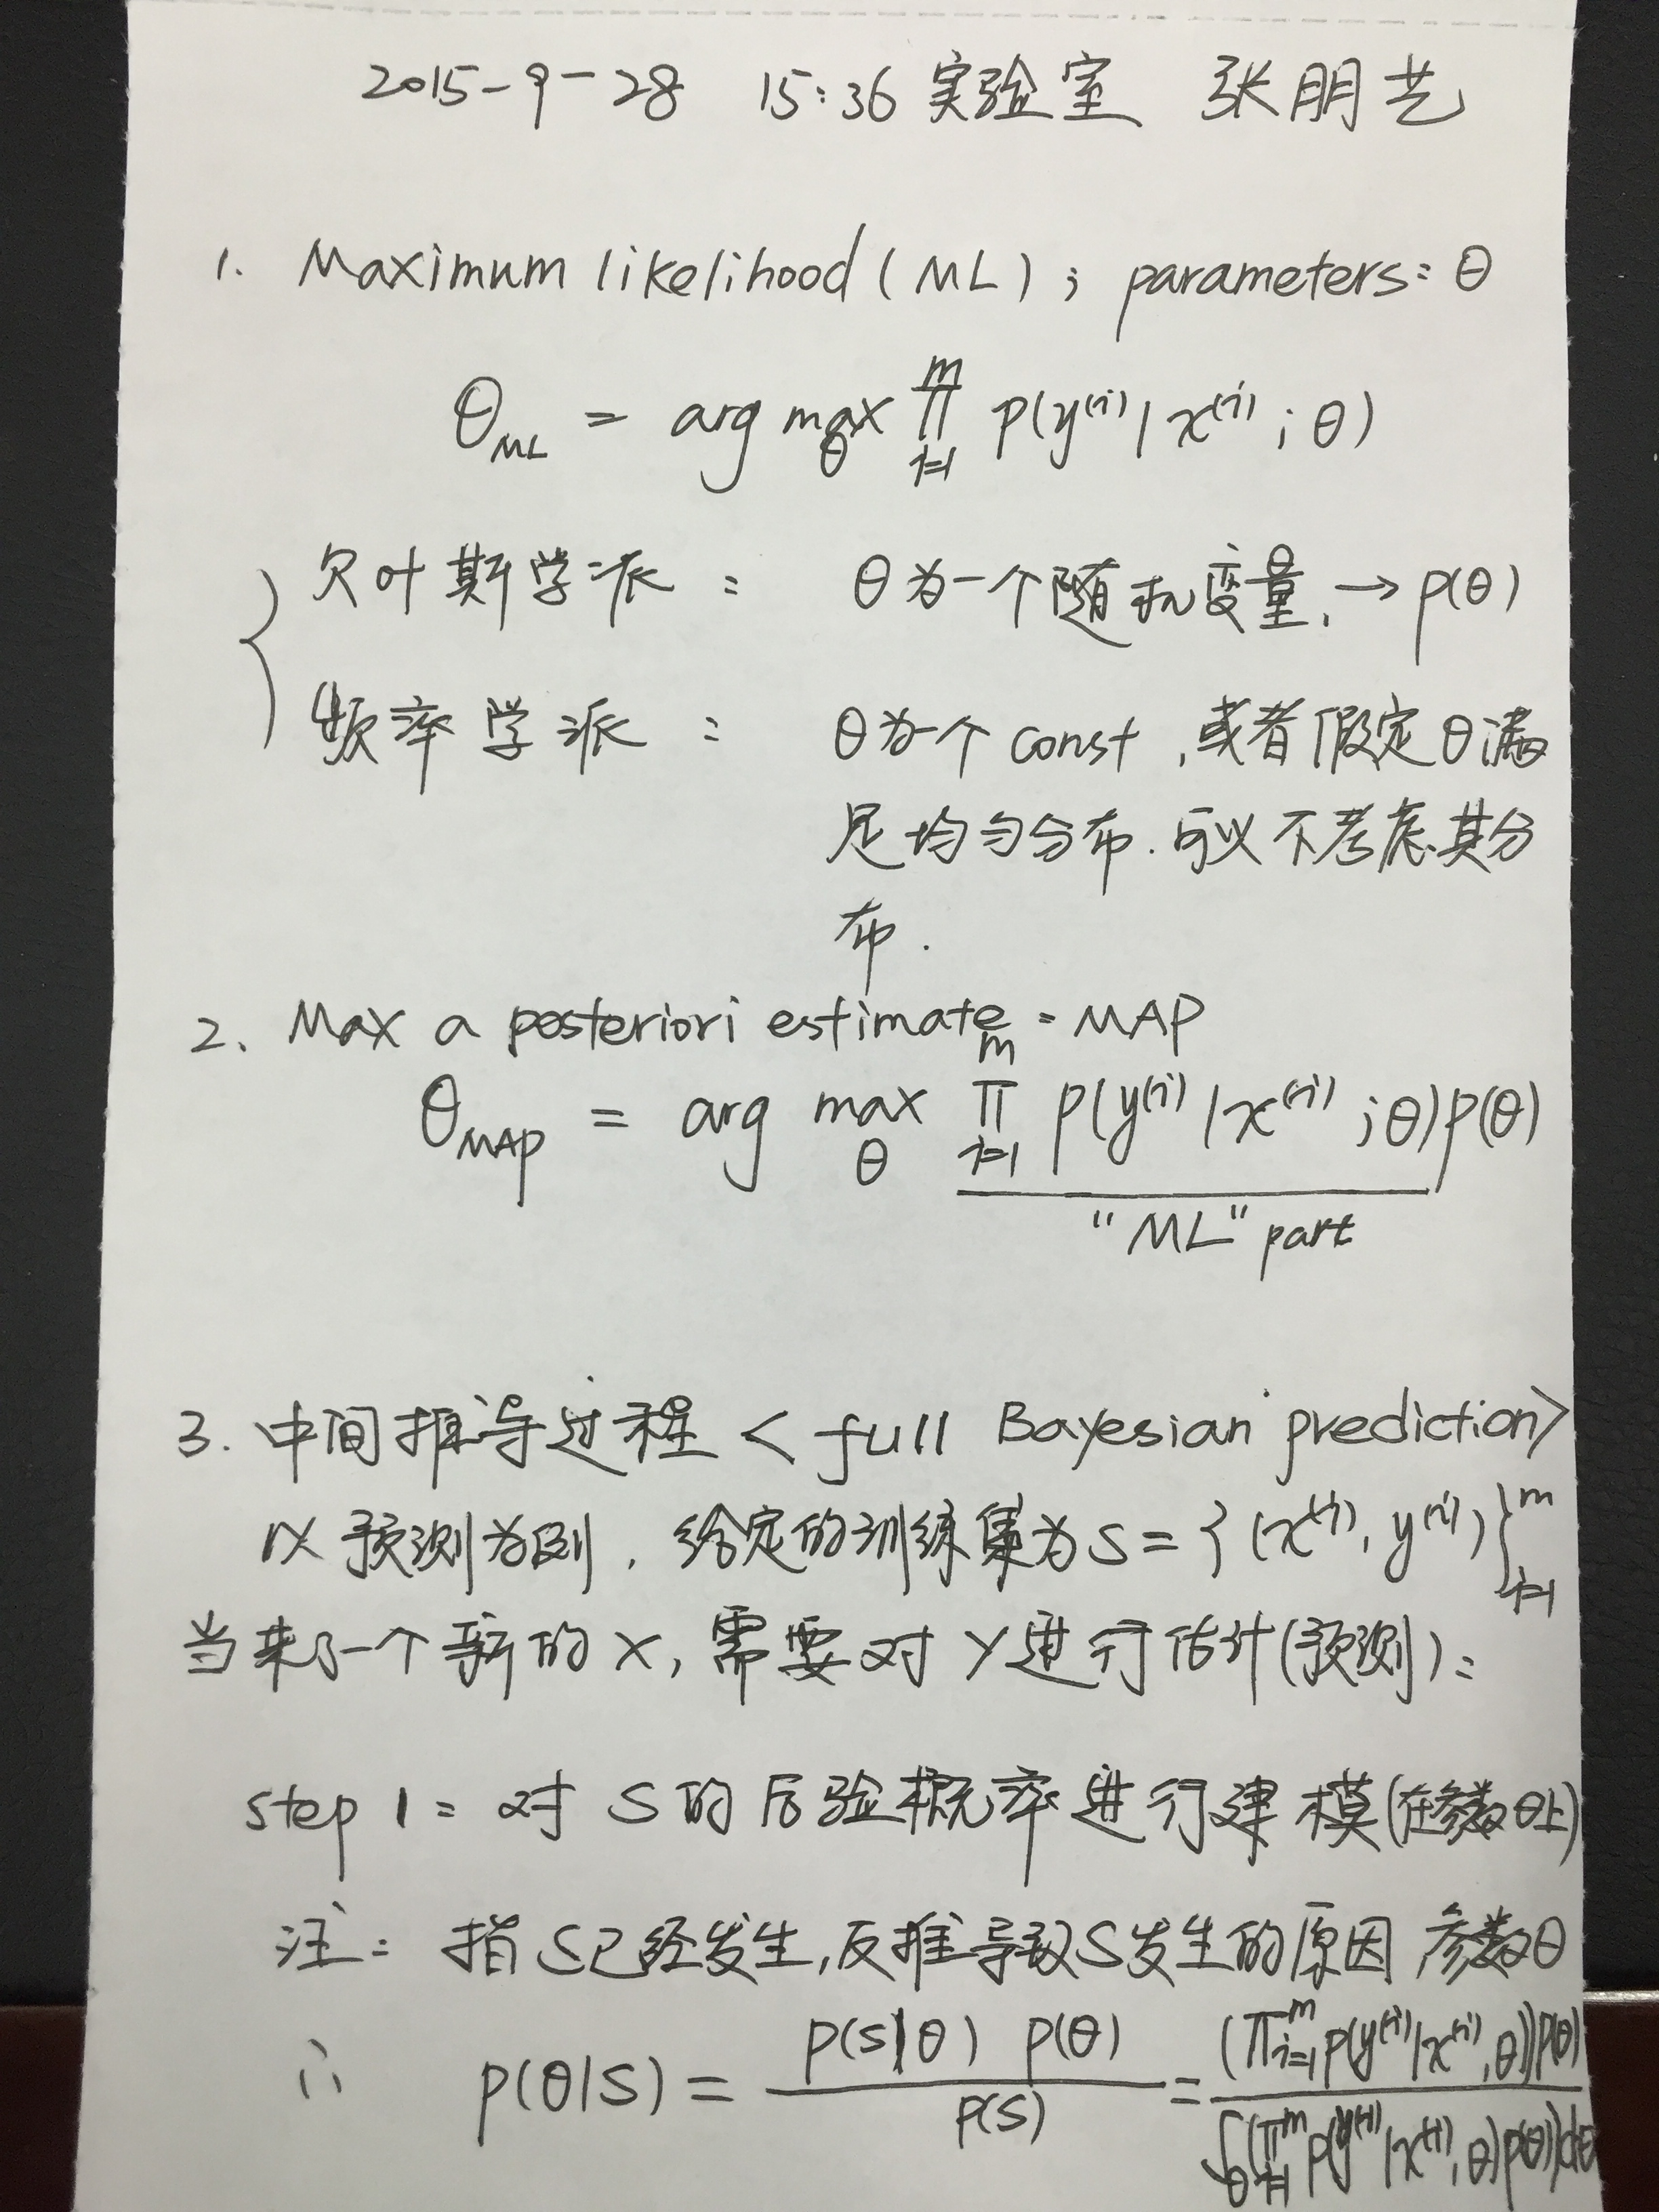 2015-9-28 15:36 实验室 张朋艺
1. Maximum likelihood (ML); parameters: θ
θ_ML = arg max_θ ∏_{i=1}^{m} p(y^(i) | x^(i); θ)
贝叶斯学派: θ为一个随机变量. → p(θ)
频率学派: θ为一个 const, 或者假定θ满
足均匀分布. 可以不考虑其分
布.
2. Max a posteriori estimate: MAP
θ_MAP = arg max_θ ∏_{i=1}^{m} p(y^(i) | x^(i); θ) p(θ)
"ML" part
3. 中间推导过程 < full Bayesian prediction>
以预测为例, 给定的训练集为 S = {(x^(i), y^(i))}_{i=1}^{m}
当来了一个新的 x, 需要对 y 进行估计(预测):
step 1: 对 S 的后验概率进行建模(在参数θ上)
注: 指S已经发生,反推导致S发生的原因 参数θ
∴ p(θ|S) = p(S|θ) p(θ) / p(S) = (∏_{i=1}^{m} p(y^(i)|x^(i), θ)) p(θ) / ∫_θ (∏_{i=1}^{m} p(y^(i)|x^(i), θ) p(θ)) dθ